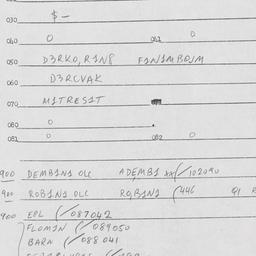 030 $ —
040 0 042 0
050 D3RKO, R1N8 F1N1MB0JM
060 D3RCVAK
070 M1TRES1T
080 0
081 0 082 0
900 DEMB1N1 OLC ADEMB1 102040
900 ROB1N1 OLC ROB1N1 (446 Q1
900 EPL (/087042
FLOM1N (/089050
BARN (/088 041